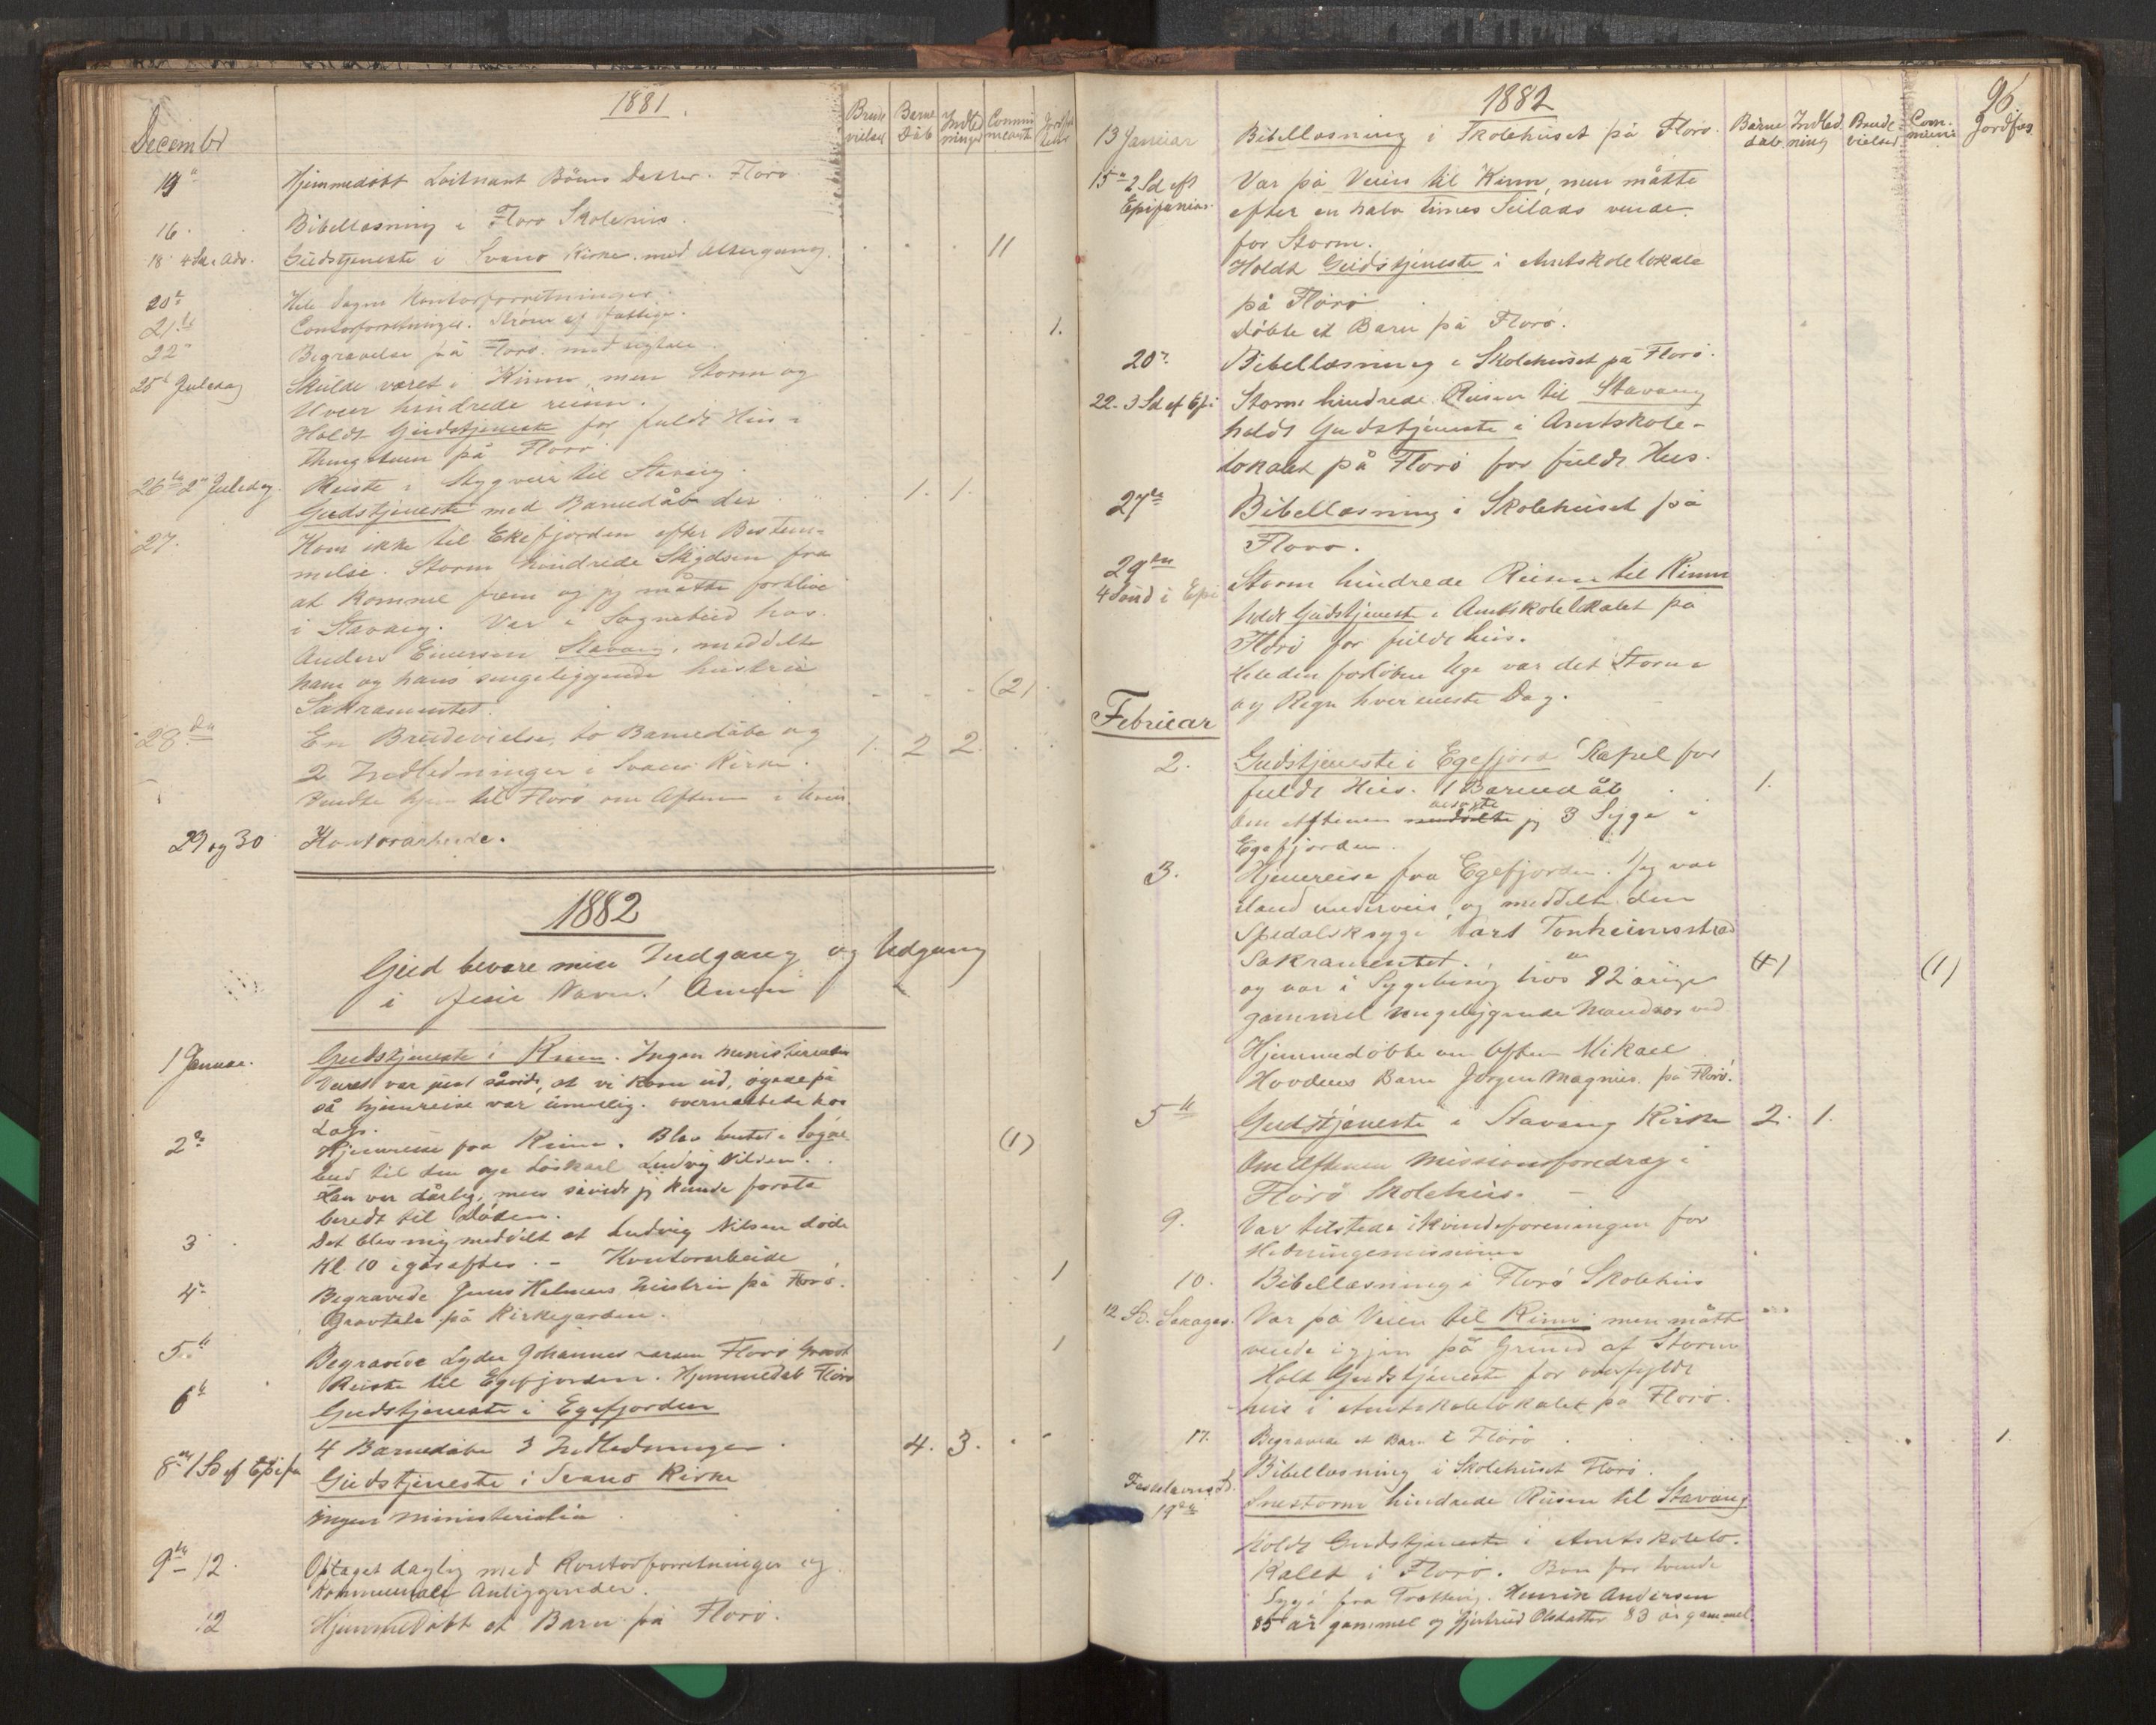 1881
Decembr
Brude vielser Barne Dåb Indledninger Communicanter
19 Hjemmedøbt Loitnant Bøms Datter. Florø
16. Bibellæsning i Florø Skolehus.
18 4 Sd. i Adv. Gudstjeneste i Svanø Kirke med Altergang. 11
20 Hele Dagen Kontorforretninger.
21 Contorforretninger. af fattige.
22 Begravelse på Florø. 1.
25 Juledag Skulde været i Kinn, men Storm og
Uveir hindrede reisen.
Holdt Gudstjeneste for fuldt Hus i
Thingstuen på Florø
26 2 Juledag. Reiste i Stygveir til Stavang.
Gudstjeneste med Barnedåb der 1. 1.
27. Kom ikke til Ekefjorden efter Bestem-
melse. Storm hindrede Skydsen fra
at komme frem og jeg måtte forblive
i Stavang. Var i Sognebud hos
Anders Einersen Stavang, meddelte
ham og hans sengeliggende hustru
Sakramentet. (2)
28 En Brudevielse, to Barnedåbe og 1. 2 2.
2 Indledninger i Svanø Kirke.
hjem til Florø om Aftenen i
29 og 30 Kontorarbeide.
1882
Gud bevare min Indgang og Udgang
i Jesu Navn! Amen
1 Januar. Gudstjeneste i Kinn. Ingen ministerialia
Veiret var just såvidt, at vi kom ud,
så hjemreise var umulig. overnattede hos
2 Hjemreise fra Kinn. Blev hentet i Sogne-
bud til den syge Loskarl Ludvig Nilsen. (1)
Han var dårlig, men såvidt jeg kunde forstå
beredt til Døden.
3 Det blev mig meddelt at Ludvig Nilsen døde
Kl. 10 igåraftes. - Kontorarbeide
4 Begravede Jens Helmers hustru på Florø. 1
Gravtale på Kirkegården.
5 Begravede Lyder Johannes Florø 1
Reiste til Egefjorden. Hjemmedåb Florø
6 Gudstjeneste i Egefjorden
4 Barnedåbe 3 Indledninger 4. 3.
8 1 Sd ef Epifa Gudstjeneste i Svanø Kirke
Ingen ministerialia
9 - 12. Optaget daglig med Kontorforretninger og
Kommunale Anliggender.
12 Hjemmedøbt et Barn på Florø.
1882
96
Barne dåb. Indled ning Brude vielser Com- muni Jordfæs
13 Januar Bibellæsning i Skolehuset på Florø.
15 2 Sd eft Epifanias. Var på Veien til Kinn, men måtte
efter en halv Times Seilads vende
for Storm.
Holdt Gudstjeneste i Amtskolelokale
på Florø
Døbte et Barn på Florø.
20 Bibellæsning i Skolehuset på Florø.
22 - 3 Sd ef Epi Storm hindrede Reisen til Stavang
holdt Gudstjeneste i Amtskole-
lokalet på Florø for fuldt Hus.
27 Bibellæsning i Skolehuset på
Florø.
29 4 Sønd i Epi Storm hindrede Reisen til Kinn
holdt Gudstjeneste i Amtskolelokalet på
Florø for fuldt hus.
Hele den forløbne Uge var det Storm
og Regn hver eneste Dag.
Februar
2. Gudstjeneste i Egefjord Kapel for
fuldt Hus. 1 Barnedåb 1.
Om Aftenen besøgte jeg 3 Syge i
Egefjorden.
3. Hjemreise fra Egefjorden. Jeg var
iland underveis, og meddelte den
Spedalsksyge Lars Tonheimsstrand
Sakramentet. (1) (1)
og var i Sygebesøg hos en 82 årige
gammel sengeliggende Mand
Hjemmedøbte om Aftenen Mikael
Hovdens Barn Jørgen Magnus. på Florø.
5 Gudstjeneste i Stavang Kirke 2. 1.
Om Aftenen Missionsforedrag i
Florø Skolehus. -
9. Var tilstede i Kvindeforeningen for
Hedningemissionen
10. Bibellæsning i Florø Skolehus
12 Sd. Sexages. Var på Veien til Kinn men måtte
vende igjen på Grund af Storm
Holt Gudstjeneste for overfyldt
Hus i Amtskolelokalet på Florø.
17. Begravede et Barn i Florø 1.
Bibellæsning i Skolehuset Florø.
Fastelavnssd. 19 Snestorm hindrede Reisen til Stavang
holdt Gudstjeneste i Amtskolelo-
kalet i Florø. Bøn for tvende
Syge fra Henrik Andersen
85 år gammel og Gjertrud Olsdatter 83 år gammel